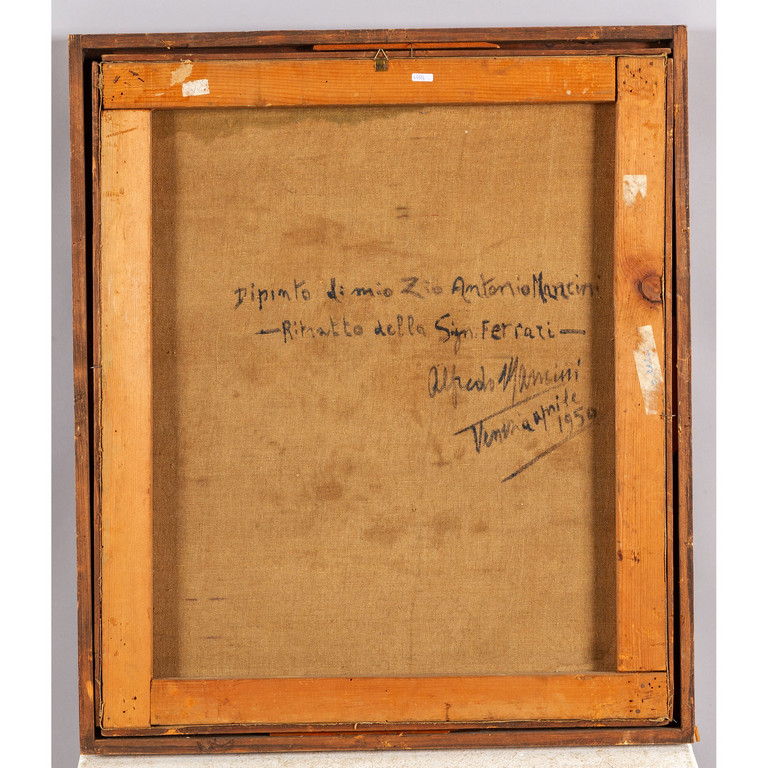 Dipinto di mio Zio Antonio Mancini
— Ritratto della Sign. Ferrari —
Alfredo Mancini
Venezia aprile
1950